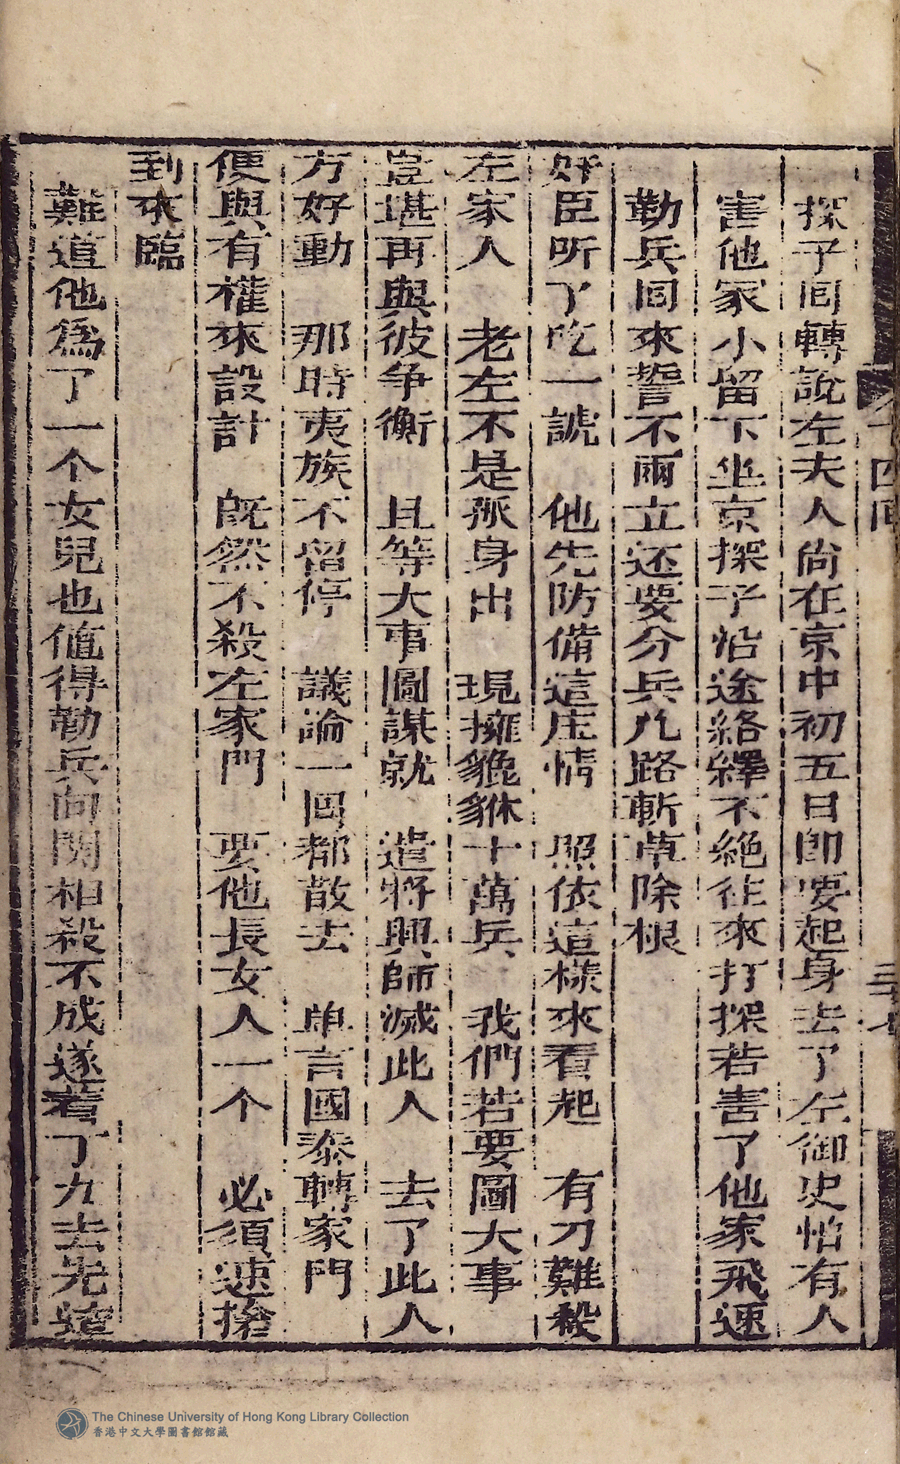 十四回
三十七
探子回轉說左夫人尙在京中初五日即要起身去了左御史怕有人
害他家小留下坐京探子沿途絡繹不絕往來打探若害了他家飛速
勒兵回來誓不兩立还要分兵九路斬草除根
奸臣听了吃一諕 他先防備這庄情 照依這樣來看起 有刀難殺
左家人 老左不是孤身出 現擁貔貅十萬兵 我們若要圖大事
豈堪再與彼争衡 且等大事圖謀就 遣將興師滅此人 去了此人
方好動 那時夷族不留停 議論一回都散去 单言國泰轉家門
便與有權來設計 既然不殺左家門 要他長女人一个 必須速搶
到來臨
難道他爲了一个女兒也値得勒兵向関相殺不成遂着丁九去先
The Chinese University of Hong Kong Library Collection
香港中文大學圖書館館藏